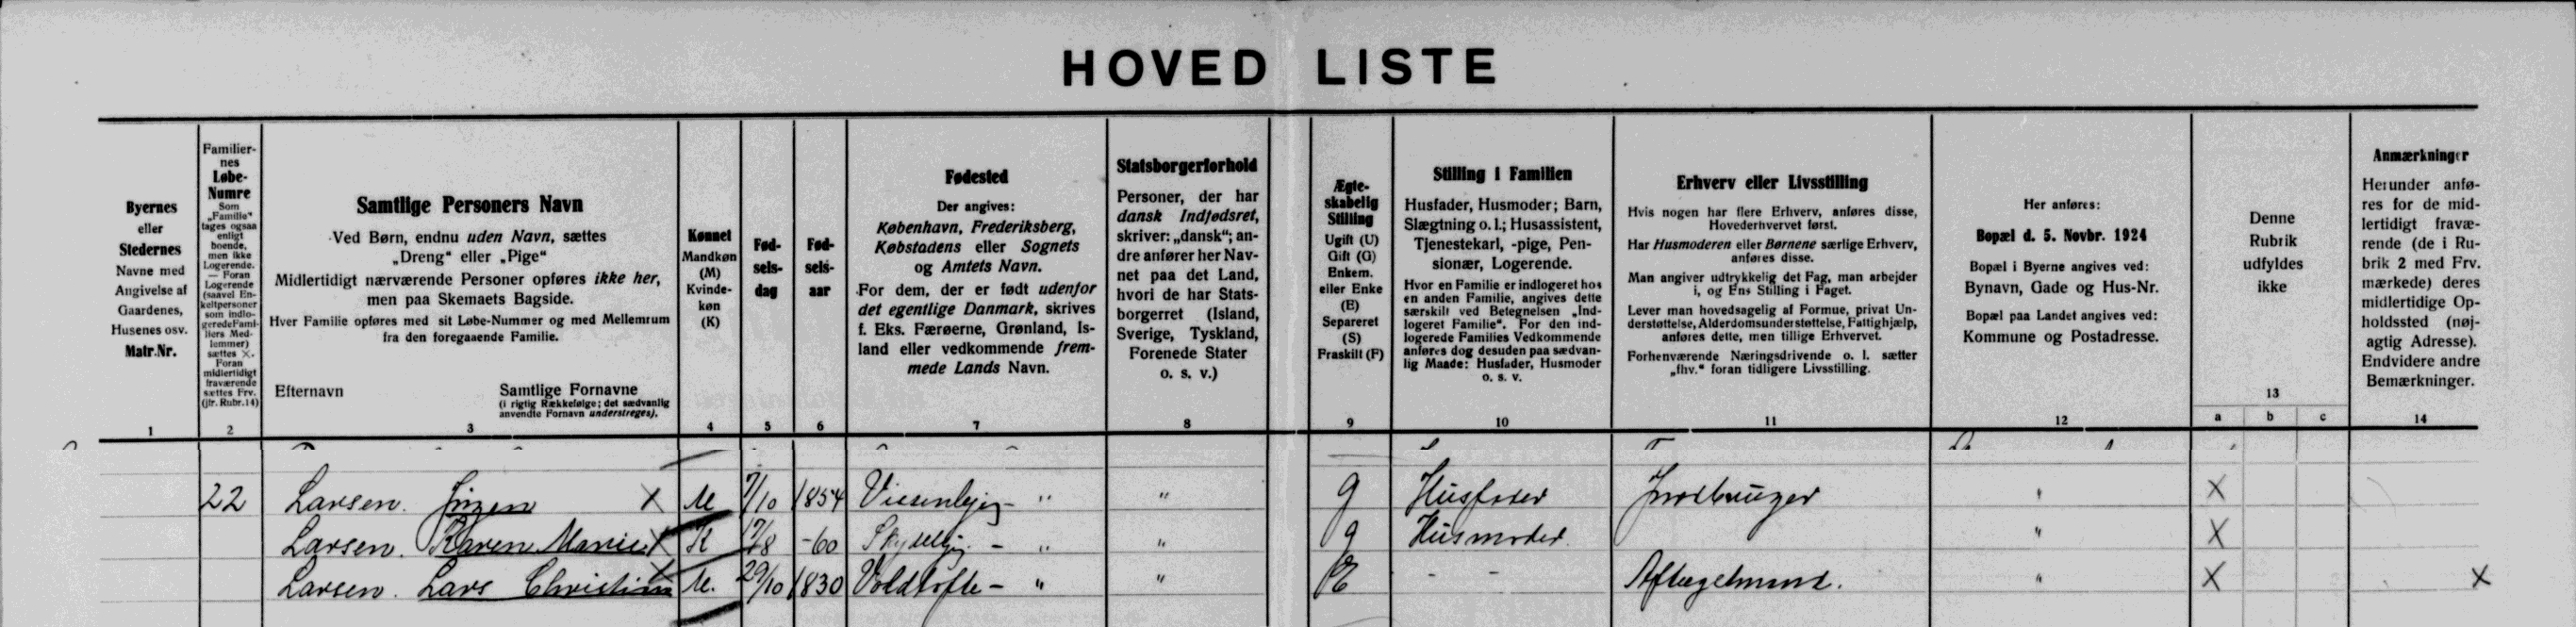 HOVED LISTE
Byernes
eller
Stedernes
Navne med
Angivelse af
Gaardenes,
Husenes osv.
Matr.Nr.
1
Familier-
nes
Løbe-
Numre
Som
„Familie"
tages ogsaa
enligt
boende,
men ikke
Logerende.
— Foran
Logerende
(saavel En-
keltpersoner
som indlo-
gerede Fami-
liers Med-
lemmer)
sættes ×.
Foran
midlertidigt
fraværende
sættes Frv.
(jfr. Rubr.14)
2
Samtlige Personers Navn
Ved Børn, endnu uden Navn, sættes
„Dreng" eller „Pige"
Midlertidigt nærværende Personer opføres ikke her,
men paa Skemaets Bagside.
Hver Familie opføres med sit Løbe-Nummer og med Mellemrum
fra den foregaaende Familie.
Efternavn Samtlige Fornavne
(i rigtig Rækkefølge; det sædvanlig
anvendte Fornavn understreges).
3
Kønnet
Mandkøn
(M)
Kvinde-
køn
(K)
4
Fød-
sels-
dag
5
Fød-
sels-
aar
6
Fødested
Der angives:
København, Frederiksberg,
Købstadens eller Sognets
og Amtets Navn.
For dem, der er født udenfor
det egentlige Danmark, skrives
f. Eks. Færøerne, Grønland, Is-
land eller vedkommende frem-
mede Lands Navn.
7
Statsborgerforhold
Personer, der har
dansk Indfødsret,
skriver: „dansk"; an-
dre anfører her Nav-
net paa det Land,
hvori de har Stats-
borgerret (Island,
Sverige, Tyskland,
Forenede Stater
o. s. v.)
8
Ægte-
skabelig
Stilling
Ugift (U)
Gift (G)
Enkem.
eller Enke
(E)
Separeret
(S)
Fraskilt (F)
9
Stilling i Familien
Husfader, Husmoder; Barn,
Slægtning o. l.; Husassistent,
Tjenestekarl, -pige, Pen-
sionær, Logerende.
Hvor en Familie er indlogeret hos
en anden Familie, angives dette
særskilt ved Betegnelsen „Ind-
logeret Familie". For den ind-
logerede Families Vedkommende
anføres dog desuden paa sædvan-
lig Maade: Husfader, Husmoder
o. s. v.
10
Erhverv eller Livsstilling
Hvis nogen har flere Erhverv, anføres disse,
Hovederhvervet først.
Har Husmoderen eller Børnene særlige Erhverv,
anføres disse.
Man angiver udtrykkelig det Fag, man arbejder
i, og Ens Stilling i Faget.
Lever man hovedsagelig af Formue, privat Un-
derstøttelse, Alderdomsunderstøttelse, Fattighjælp,
anføres dette, men tillige Erhvervet.
Forhenværende Næringsdrivende o. l. sætter
„fhv." foran tidligere Livsstilling.
11
Her anføres:
Bopæl d. 5. Novbr. 1924
Bopæl i Byerne angives ved:
Bynavn, Gade og Hus-Nr.
Bopæl paa Landet angives ved:
Kommune og Postadresse.
12
Denne
Rubrik
udfyldes
ikke
13
a b c
Anmærkninger
Herunder anfø-
res for de mid-
lertidigt fravæ-
rende (de i Ru-
brik 2 med Frv.
mærkede) deres
midlertidige Op-
holdssted (nøj-
agtig Adresse).
Endvidere andre
Bemærkninger.
14
22 Larsen. Jørgen × M 7/10 1854 Vissenbjerg - " " g Husfader Jordbruger " ×
Larsen. Karen Marie × K 17/8 -60 Skydebjg. - " " g Husmoder " ×
Larsen. Lars Christian × M. 29/10 1830 Voldtofte - " " E - - Aftægtsmand. " × ×